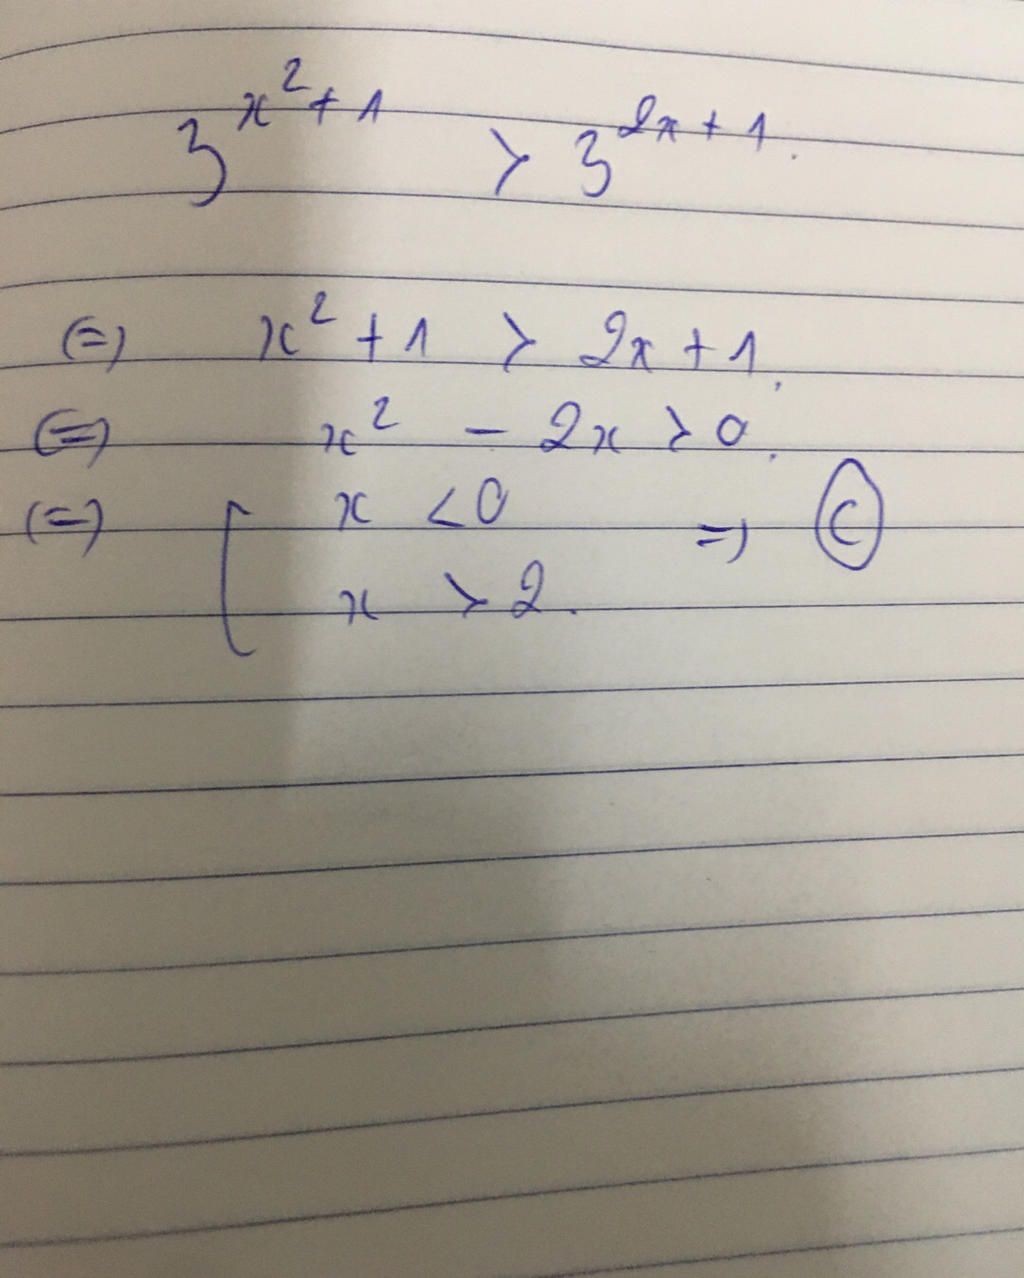 3^{x^2+1} > 3^{2x+1}.
(=) x^2 + 1 > 2x + 1.
(=) x^2 - 2x > 0.
(=) [ x < 0 => (C)
x > 2.